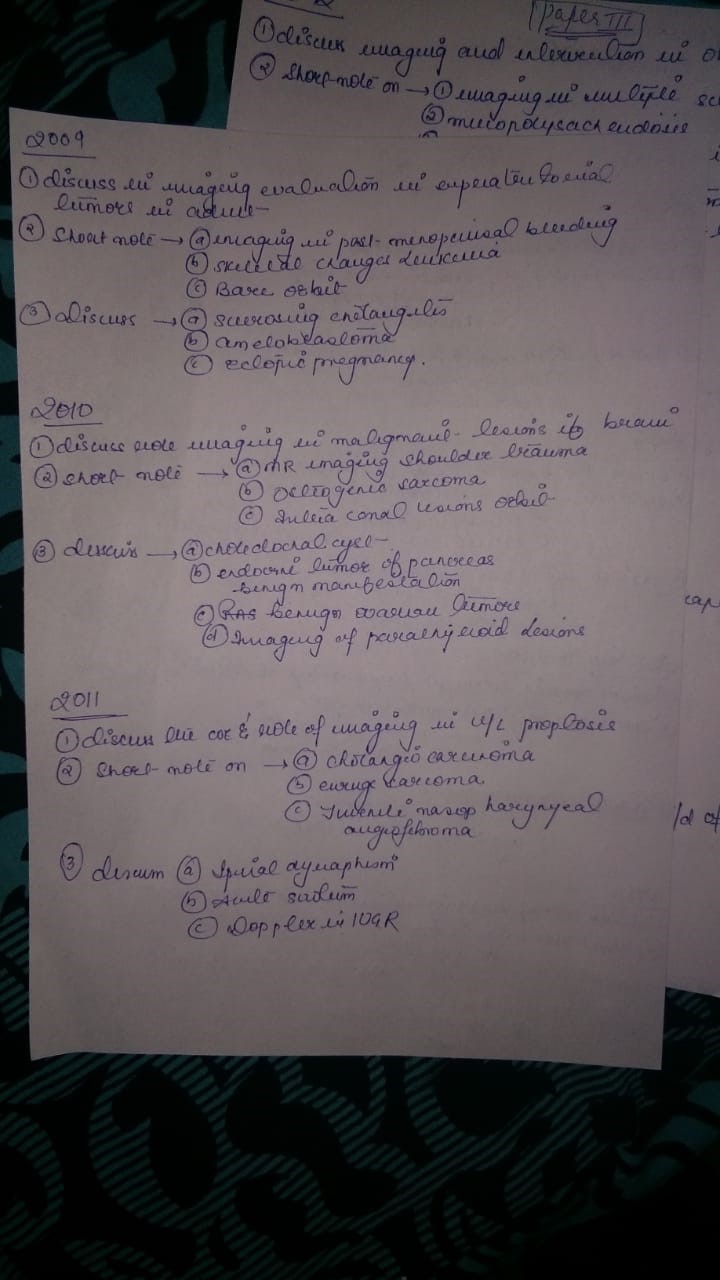 Paper III
① discuss imaging and intervention in
② Short note on → ① imaging in multiple
② mucopolysaccharidosis
2009
① discuss in imaging evaluation in
tumors in adult
② Short note → ⓐ imaging in post-menopausal bleeding
ⓑ skeletal changes Leukemia
ⓒ Bare orbit
③ discuss → ⓐ sclerosing cholangitis
ⓑ ameloblastoma
ⓒ ectopic pregnancy.
2010
① discuss role imaging in malignant lesions of brain
② Short note → ⓐ MR imaging shoulder trauma
ⓑ osteogenic sarcoma
ⓒ Intra conal lesions orbit
③ discuss → ⓐ choledochal cyst
ⓑ endocrine tumor of pancreas
benign manifestation
ⓒ benign ovarian tumors
ⓓ Imaging of parathyroid lesions
2011
① discuss the & role of imaging in U/L proptosis
② Short note on → ⓐ cholangio carcinoma
ⓑ ewing sarcoma
ⓒ Juvenile nasop haryngeal
angiofibroma
③ discuss ⓐ Spinal dysraphism
ⓑ Acute
ⓒ Doppler in IUGR